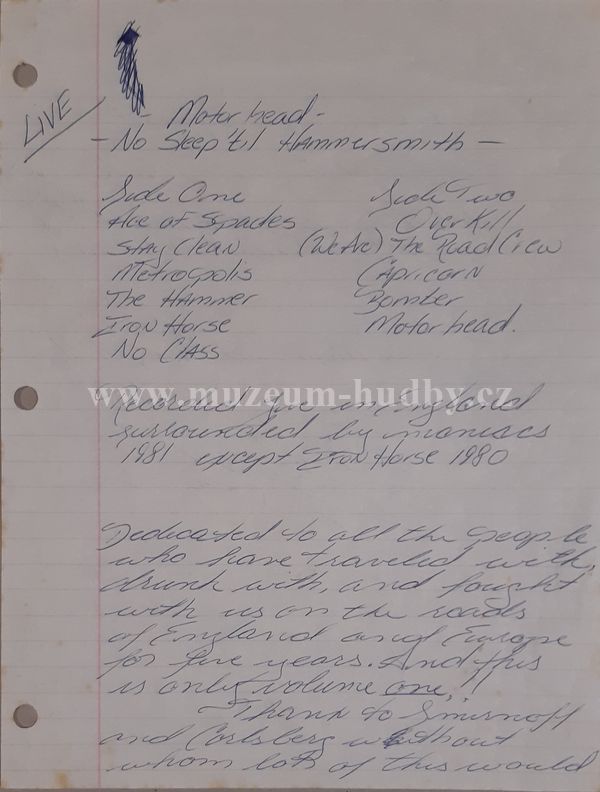 LIVE
- Motorhead -
- No Sleep 'til Hammersmith -
Side One
Ace of Spades
Stay Clean
Metropolis
The Hammer
Iron Horse
No Class
Side Two
Overkill
(We Are) The Road Crew
Capricorn
Bomber
Motorhead.
www.muzeum-hudby.cz
Recorded live in England
surrounded by maniacs
1981 except Iron Horse 1980
Dedicated to all the people
who have traveled with,
drunk with, and fought
with us on the roads
of England and Europe
for five years. And this
is only volume one,!
Thank to Smirnoff
and Carlsberg without
whom lots of this would